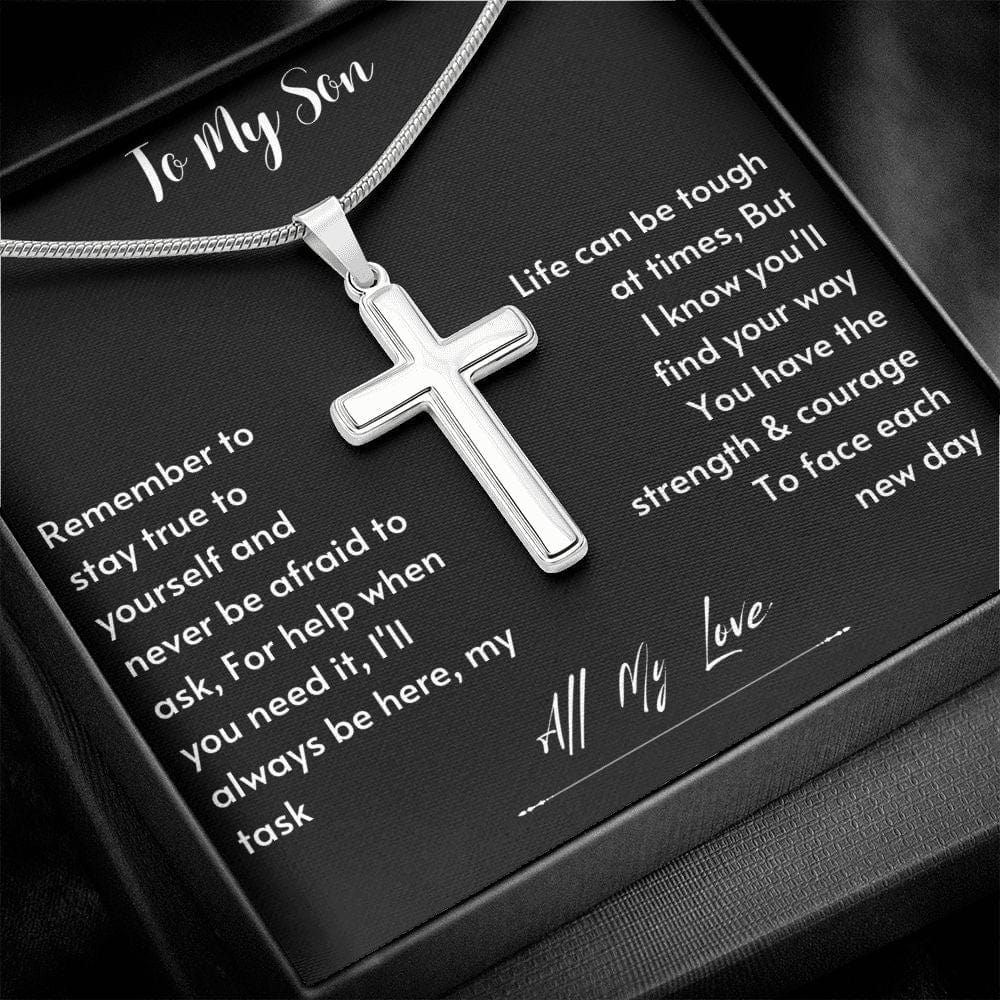 To My Son
Life can be tough
at times, But
I know you'll
find your way
You have the
strength & courage
To face each
new day
Remember to
stay true to
yourself and
never be afraid to
ask, For help when
you need it, I'll
always be here, my
task
All My Love